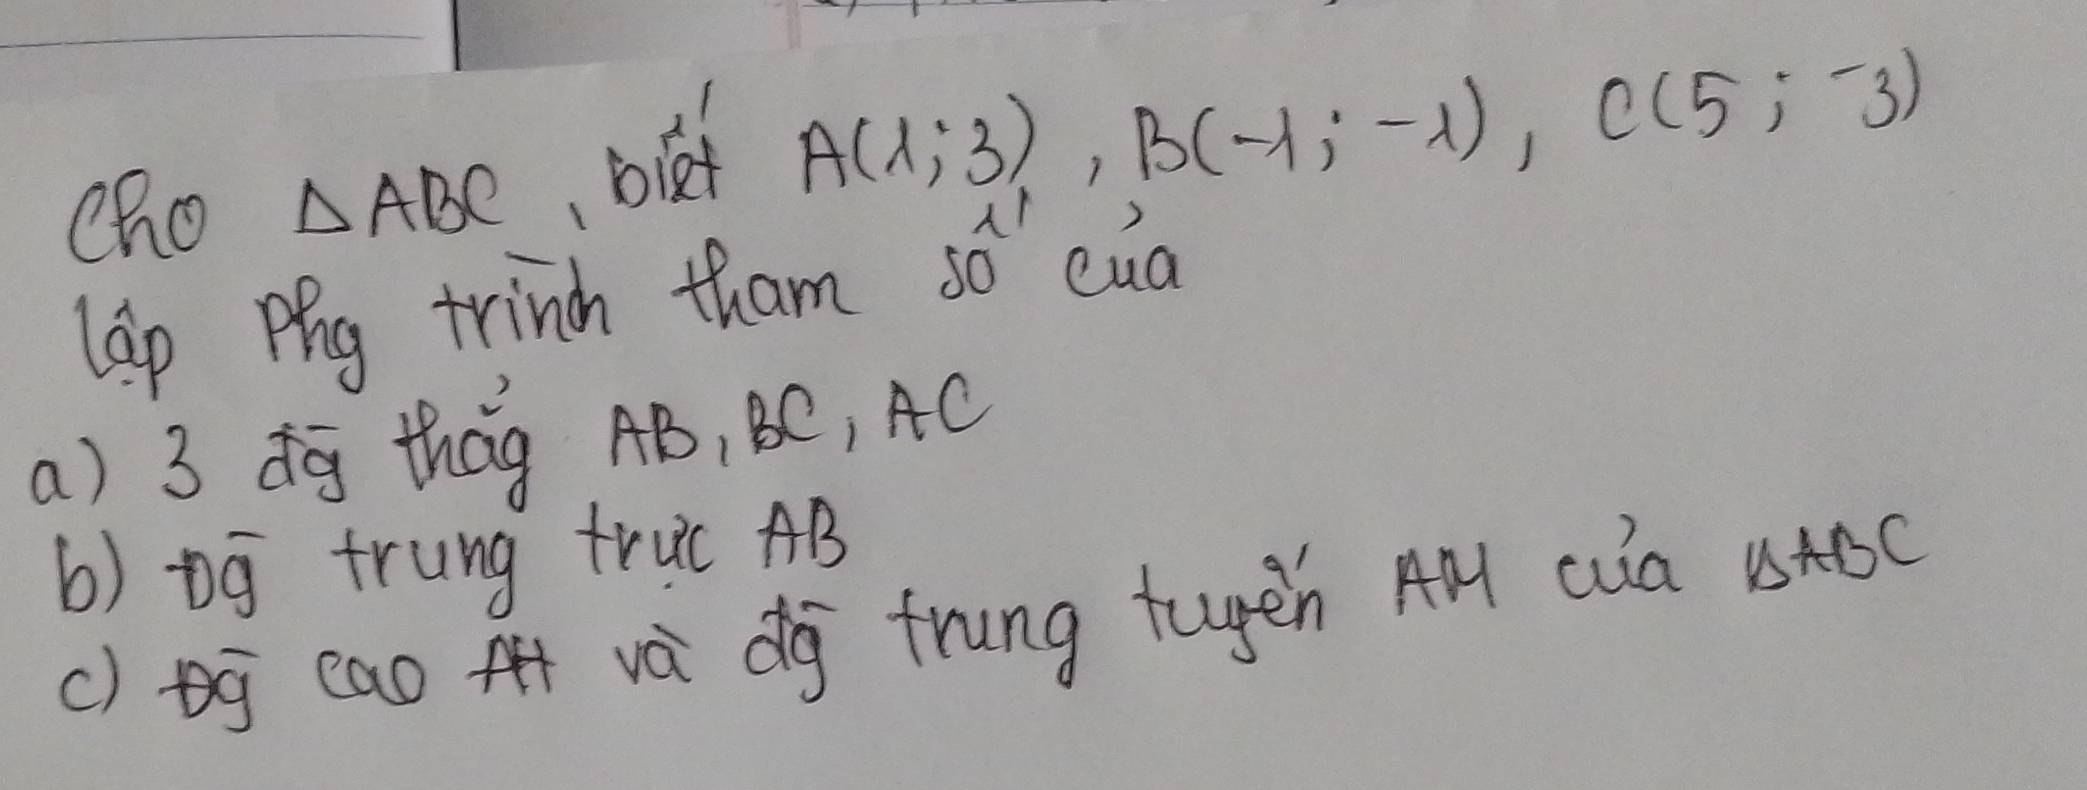 Cho △ABC, biết A(1;3), B(-1; -1), C(5; -3)
lập phg trình tham số của
a) 3 đg thẳg AB, BC, AC
b) Đg trung trực AB
c) Đg cao AH và đg trung tuyến AM của △ABC